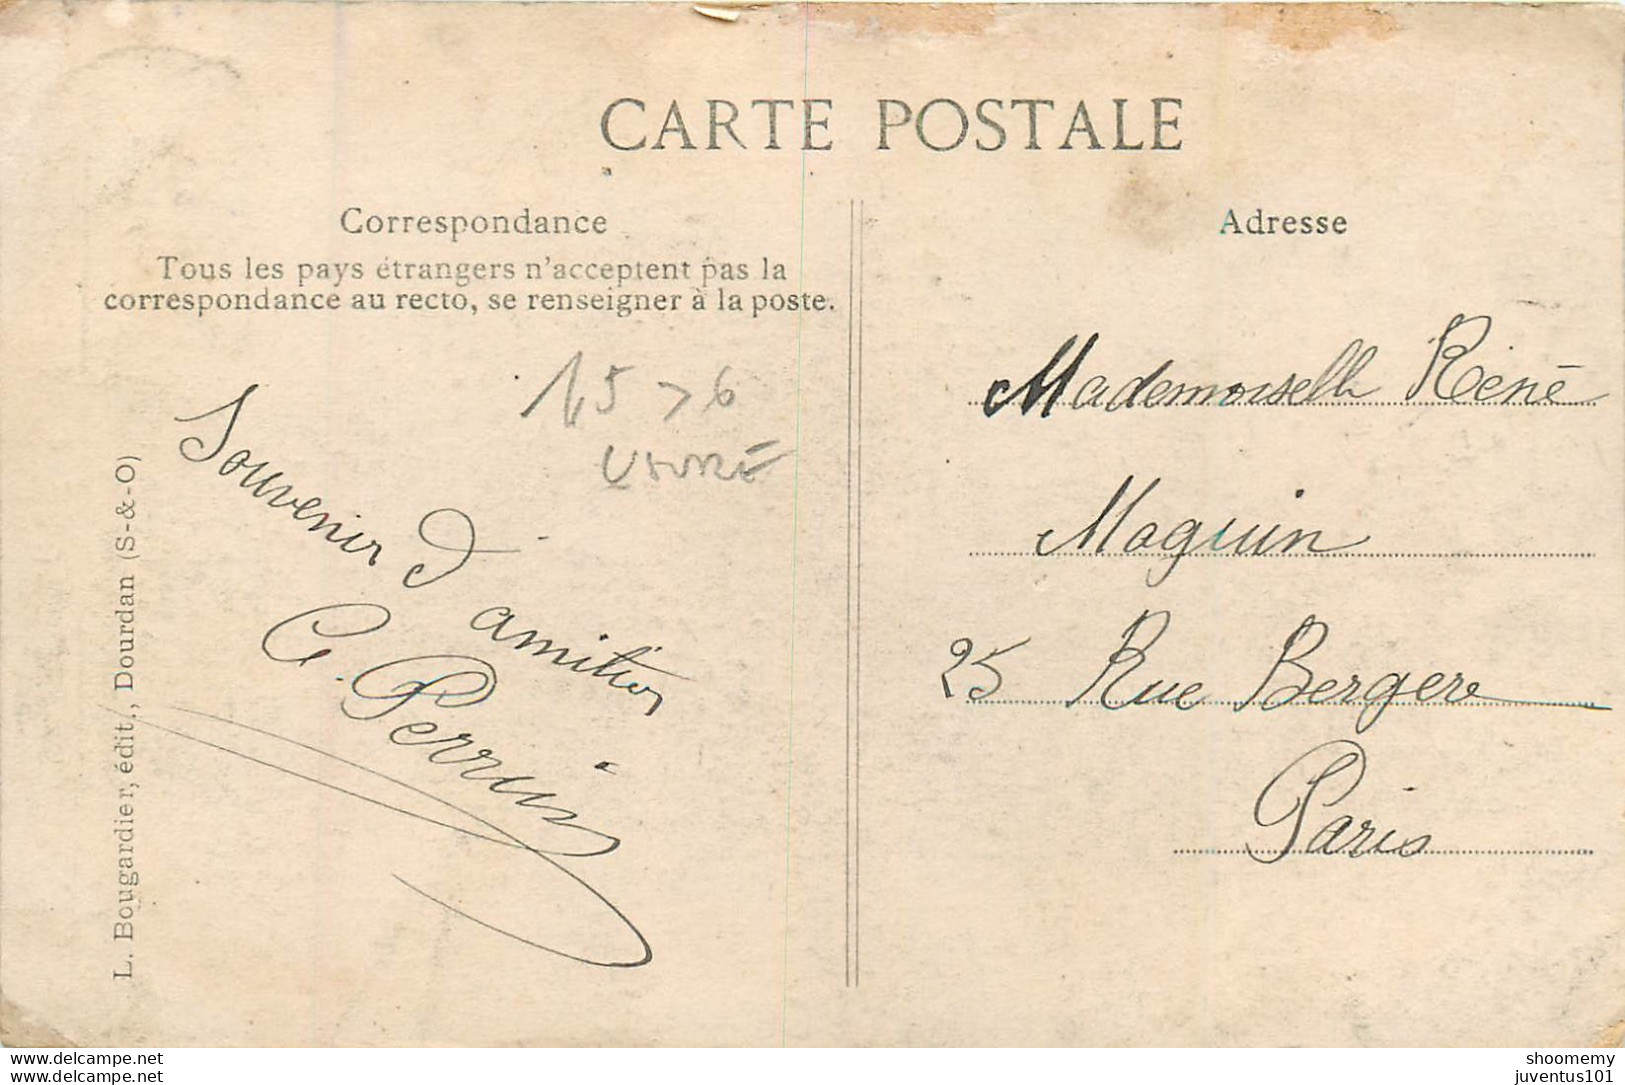 CARTE POSTALE
Correspondance
Tous les pays étrangers n'acceptent pas la
correspondance au recto, se renseigner à la poste.
Adresse
Souvenir d'
amitiés
C. Perrin
Mademoiselle Réné
Maguin
25 Rue Bergere
Paris
L. Bougardier, édit., Dourdan (S-&-O)
www.delcampe.net
www.delcampe.net
shoomemy
juventus101